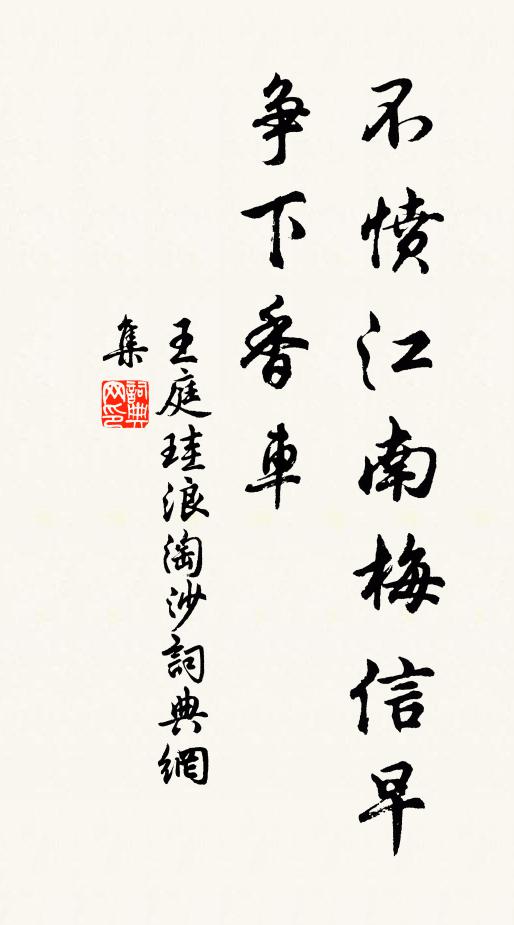 不憤江南梅信早
争下香車
王庭珪浪淘沙詞典網
集
詞典
网印